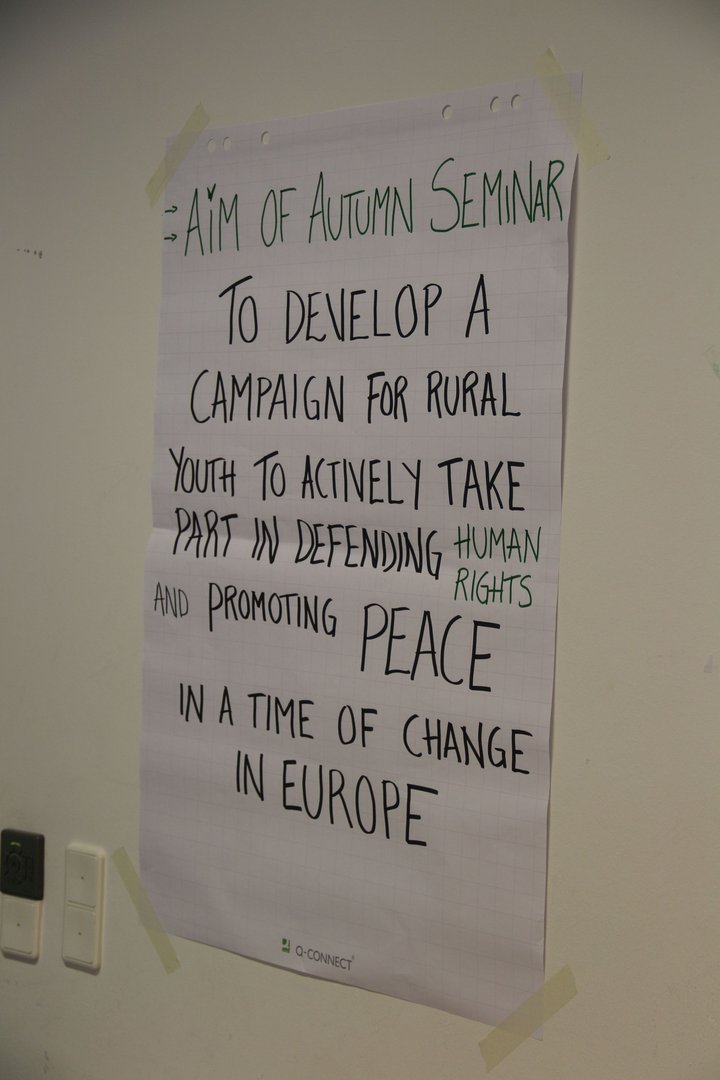 → AIM OF AUTUMN SEMINAR
→
TO DEVELOP A
CAMPAIGN FOR RURAL
YOUTH TO ACTIVELY TAKE
PART IN DEFENDING HUMAN
RIGHTS
AND PROMOTING PEACE
IN A TIME OF CHANGE
IN EUROPE
Q-CONNECT®